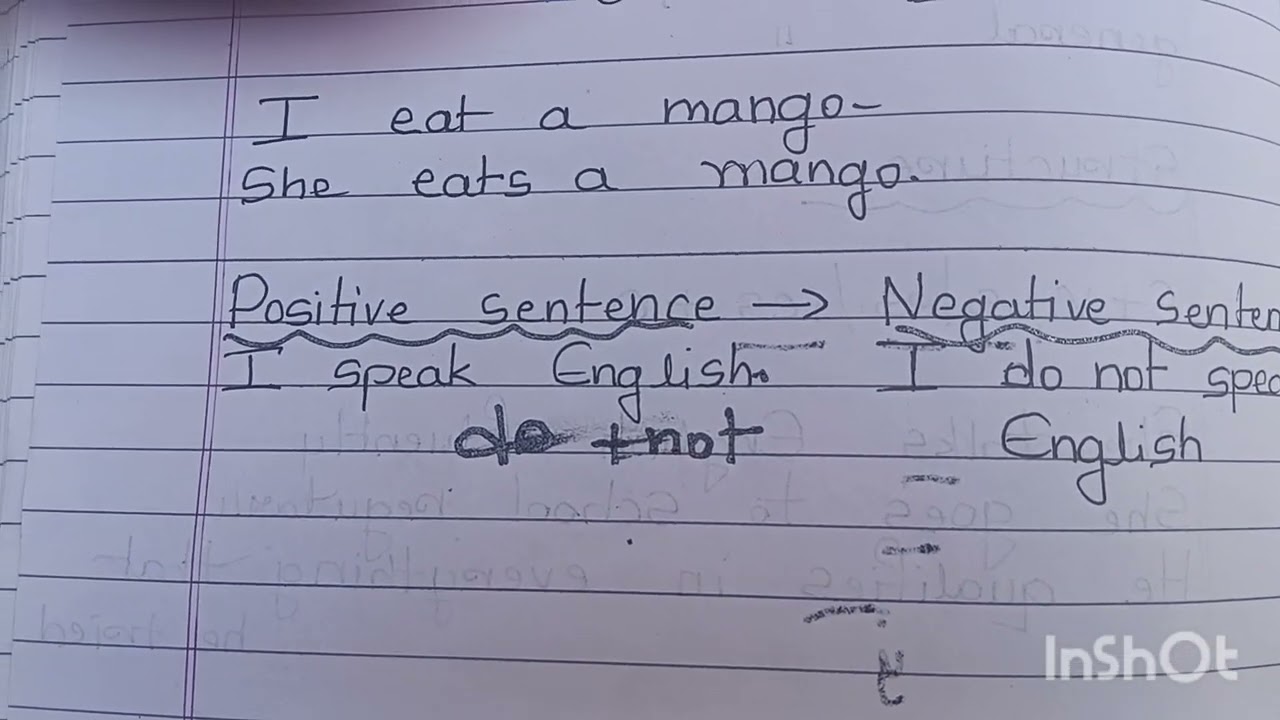 I eat a mango-
She eats a mango.
Positive sentence → Negative Senten
I speak English. I do not spea
do +not English
InShOt